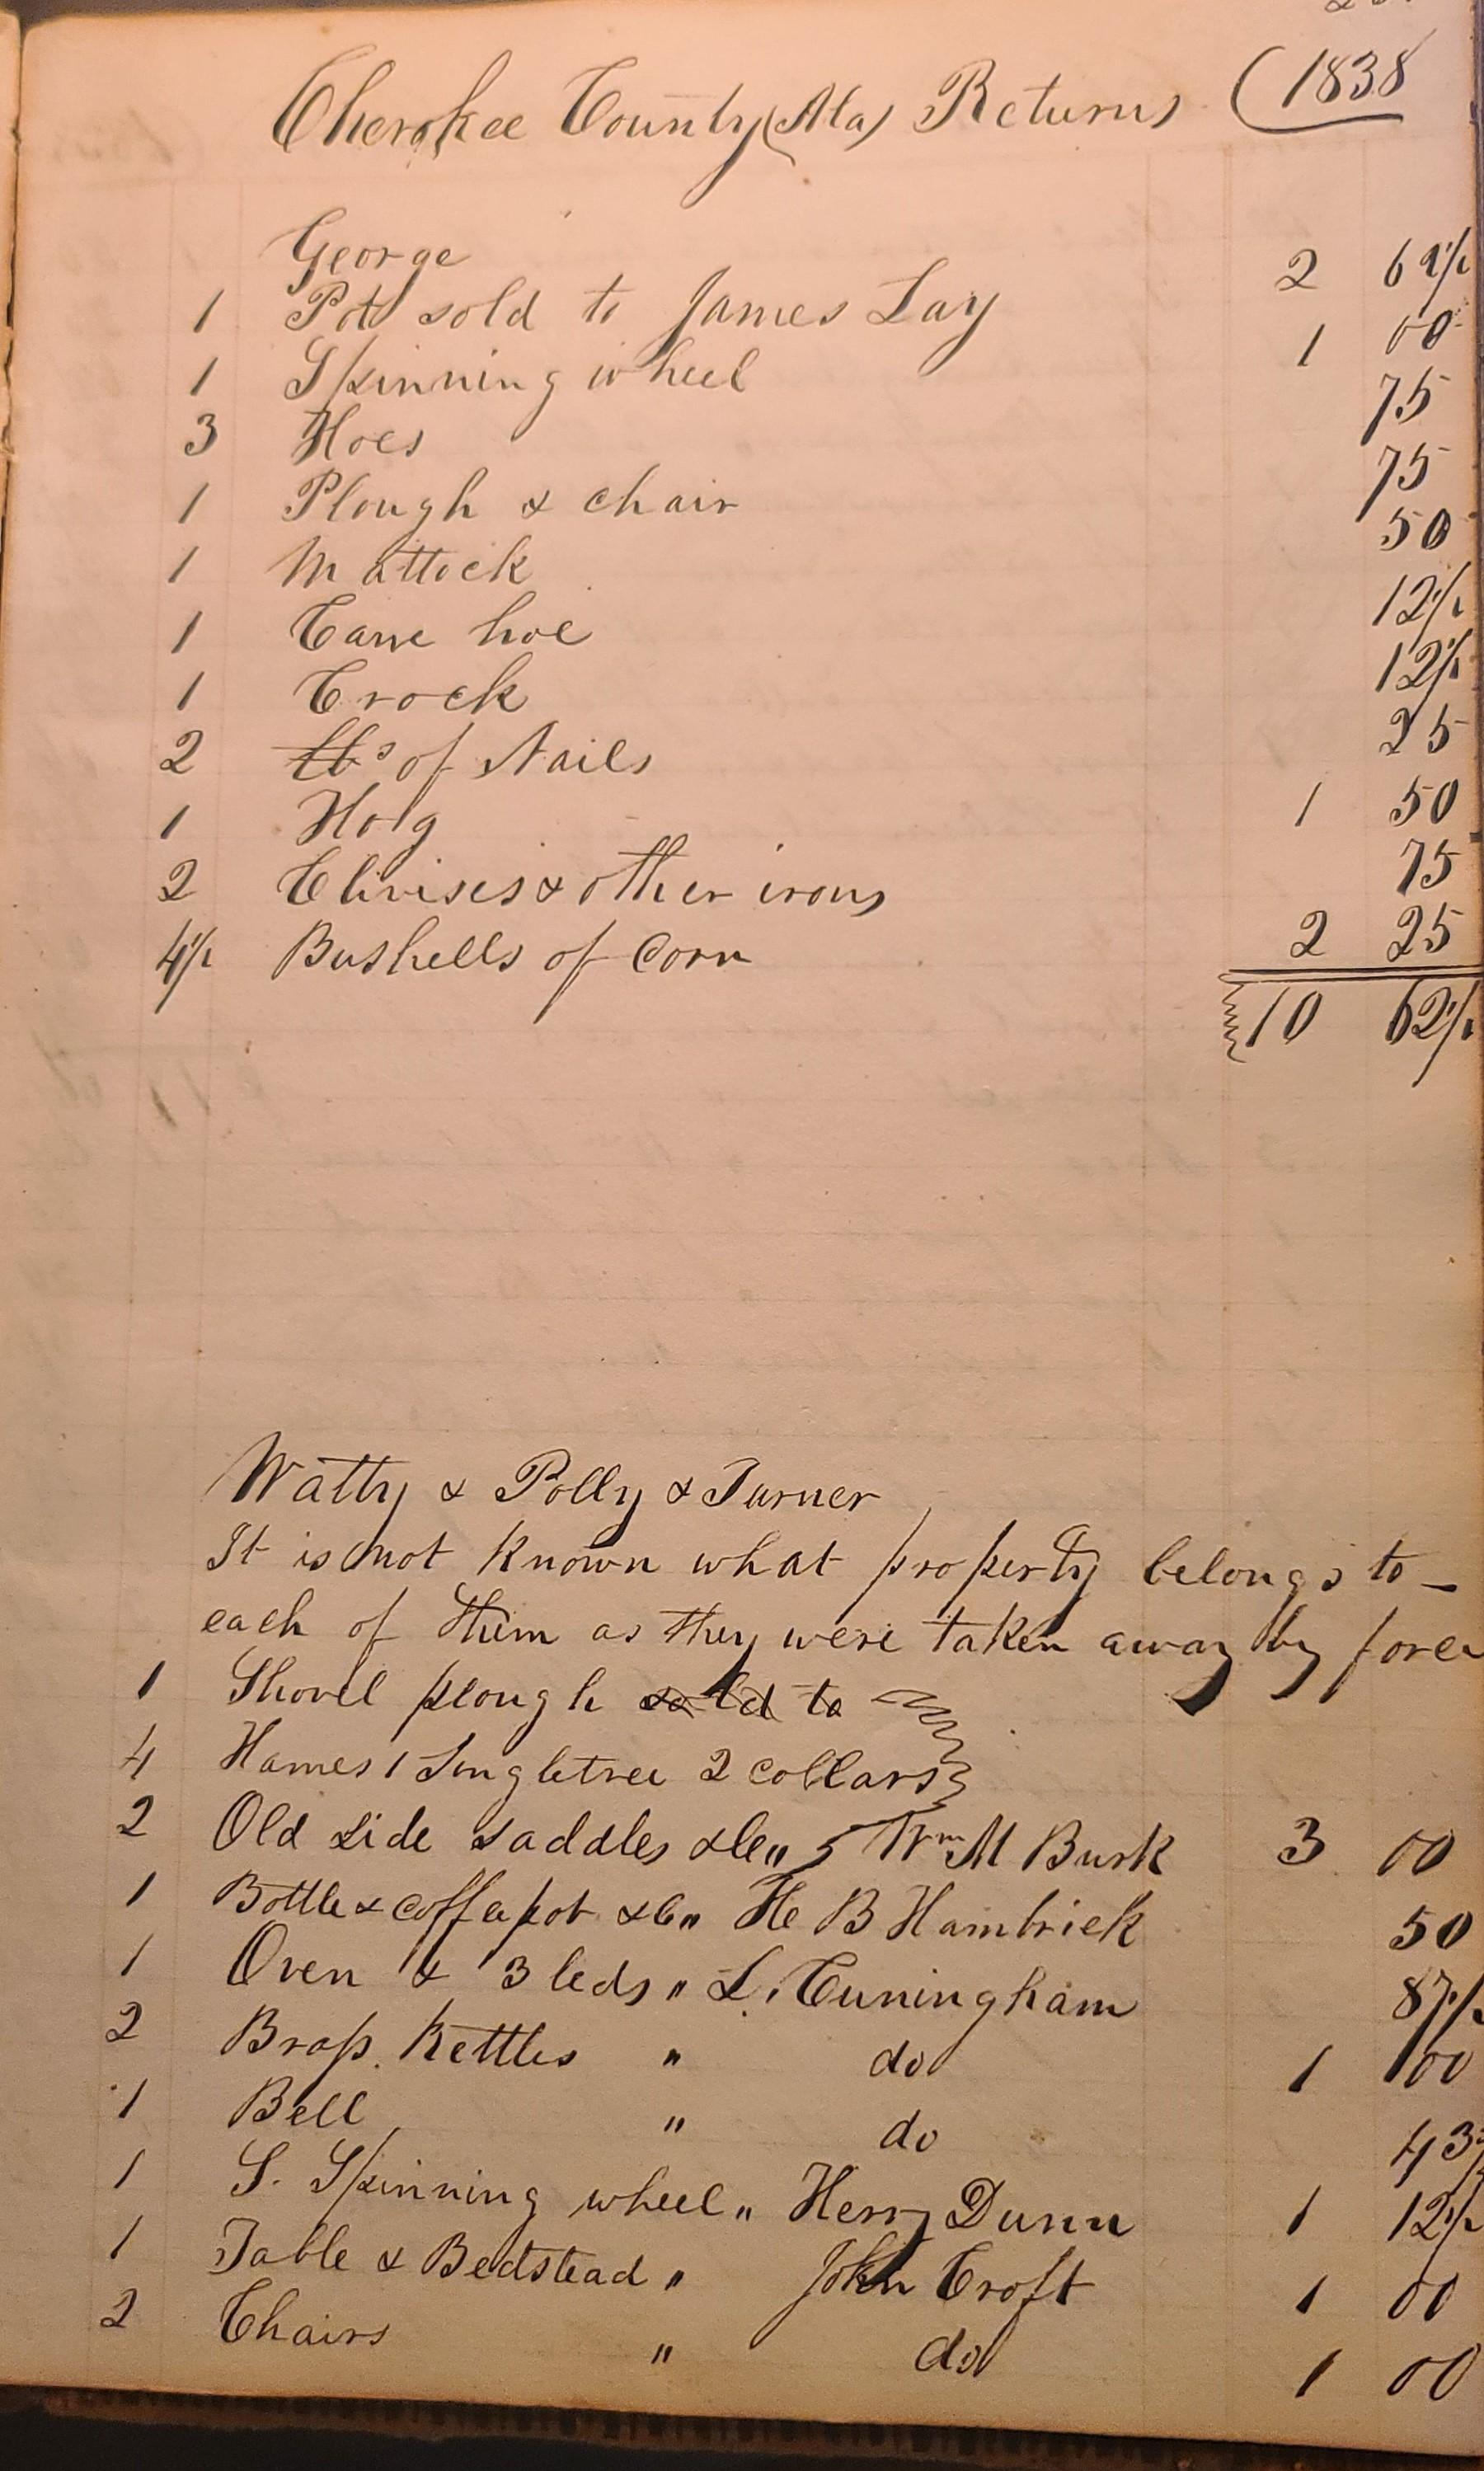 Cherokee County (Ala) Returns (1838
George
1 Pot sold to James Lay 2 62 1/2
1 Spinning wheel 1 00
3 Hoes 75
1 Plough & chair 75
1 Mattock 50
1 Cane hoe 12 1/2
1 Crock 12 1/2
2 lbs of Nails 25
1 Hog 1 50
2 Clivises & other irons 75
4 1/2 Bushells of Corn 2 25
10 62 1/2
Watty & Polly & Turner
It is not known what property belongs to
each of them as they were taken away by force
1 Shovel plough sold to
4 Hames 1 Singletree 2 collars
2 Old side saddles &c " Wm M Burk 3 00
1 Bottle & coffepot &c " He B Hambrick 50
1 Oven & 3 leds " L. Cuningham 87 1/2
2 Brass Kettles " do 1 00
1 Bell " do 43
1 S. Spinning wheel " Henry Dunn 1 12 1/2
1 Table & Bedstead " John Croft 1 00
2 Chairs " do 1 00